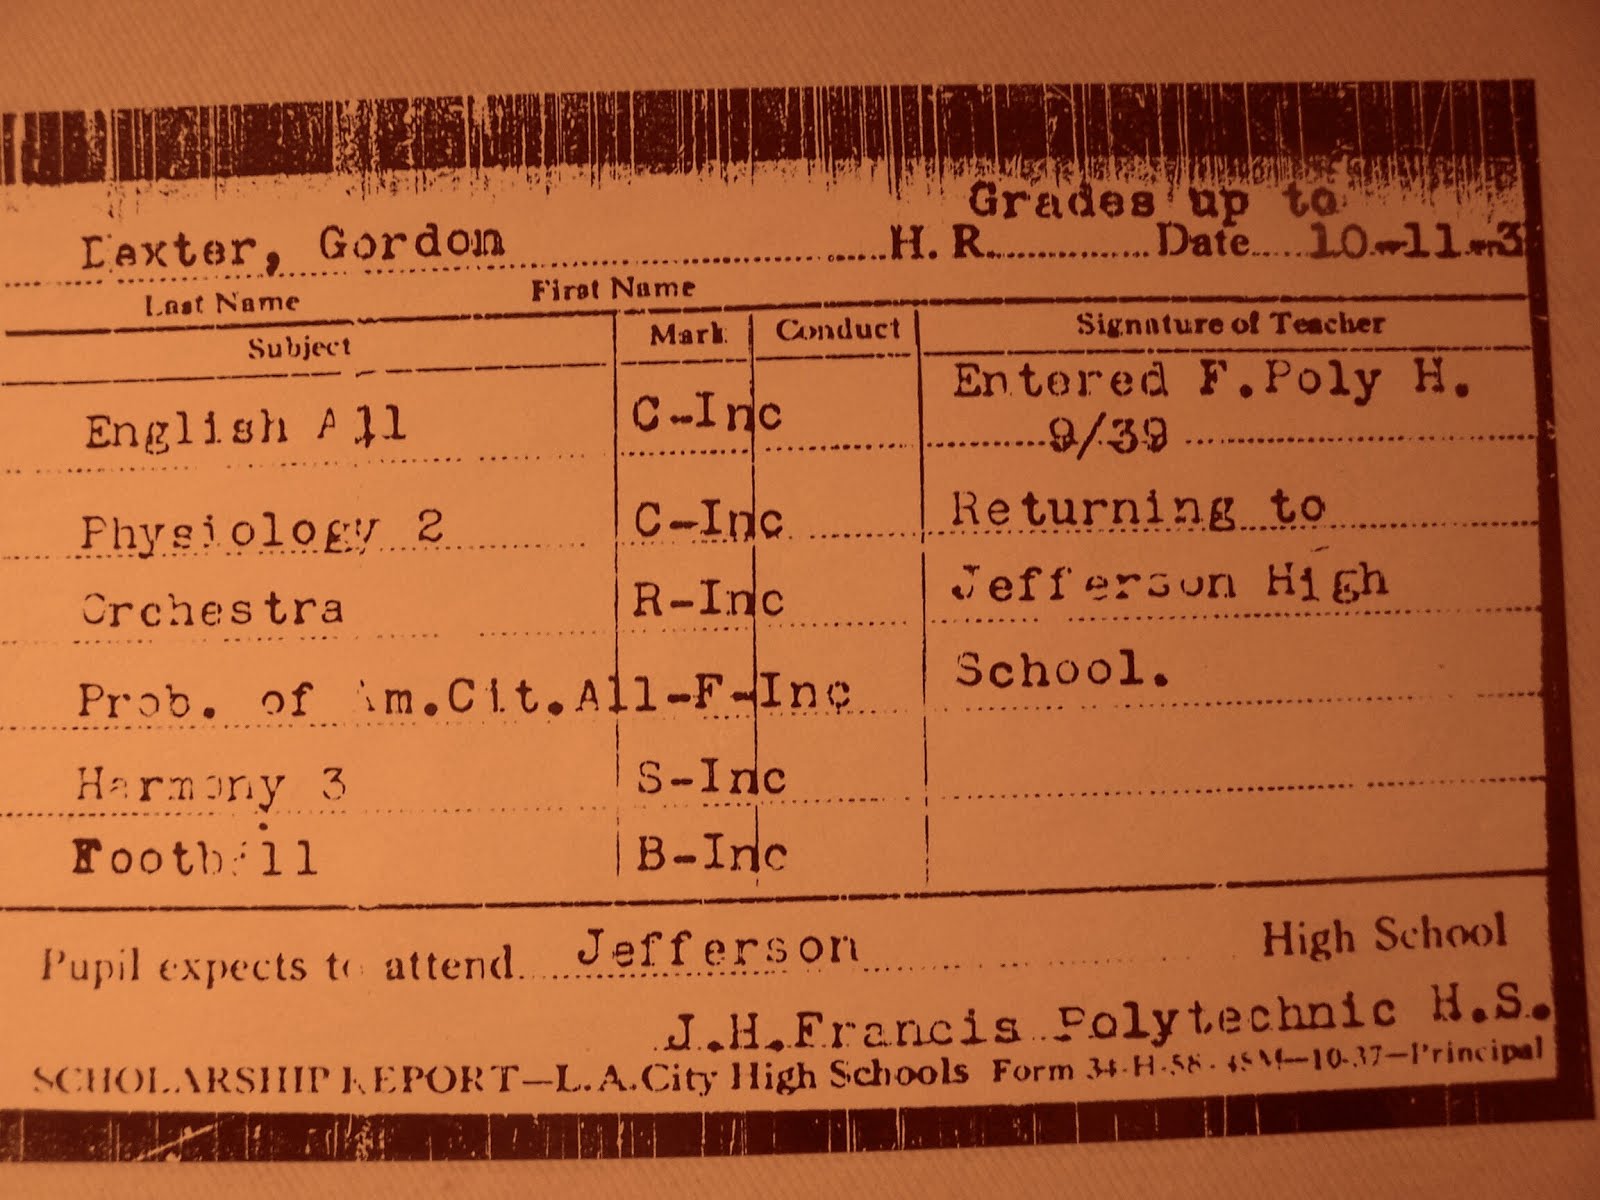 Grades up to
Dexter, Gordon H. R. Date 10-11-3
Last Name First Name
Subject Mark Conduct Signature of Teacher
English A11 C-Inc Entered F.Poly H.
9/39
Physiology 2 C-Inc Returning to
Orchestra R-Inc Jefferson High
Prob. of Am.Cit.A11-F-Inc School.
Harmony 3 S-Inc
Football B-Inc
Pupil expects to attend Jefferson High School
J.H.Francis Polytechnic H.S.
SCHOLARSHIP REPORT—L.A.City High Schools Form 34-H-58 10-37—Principal